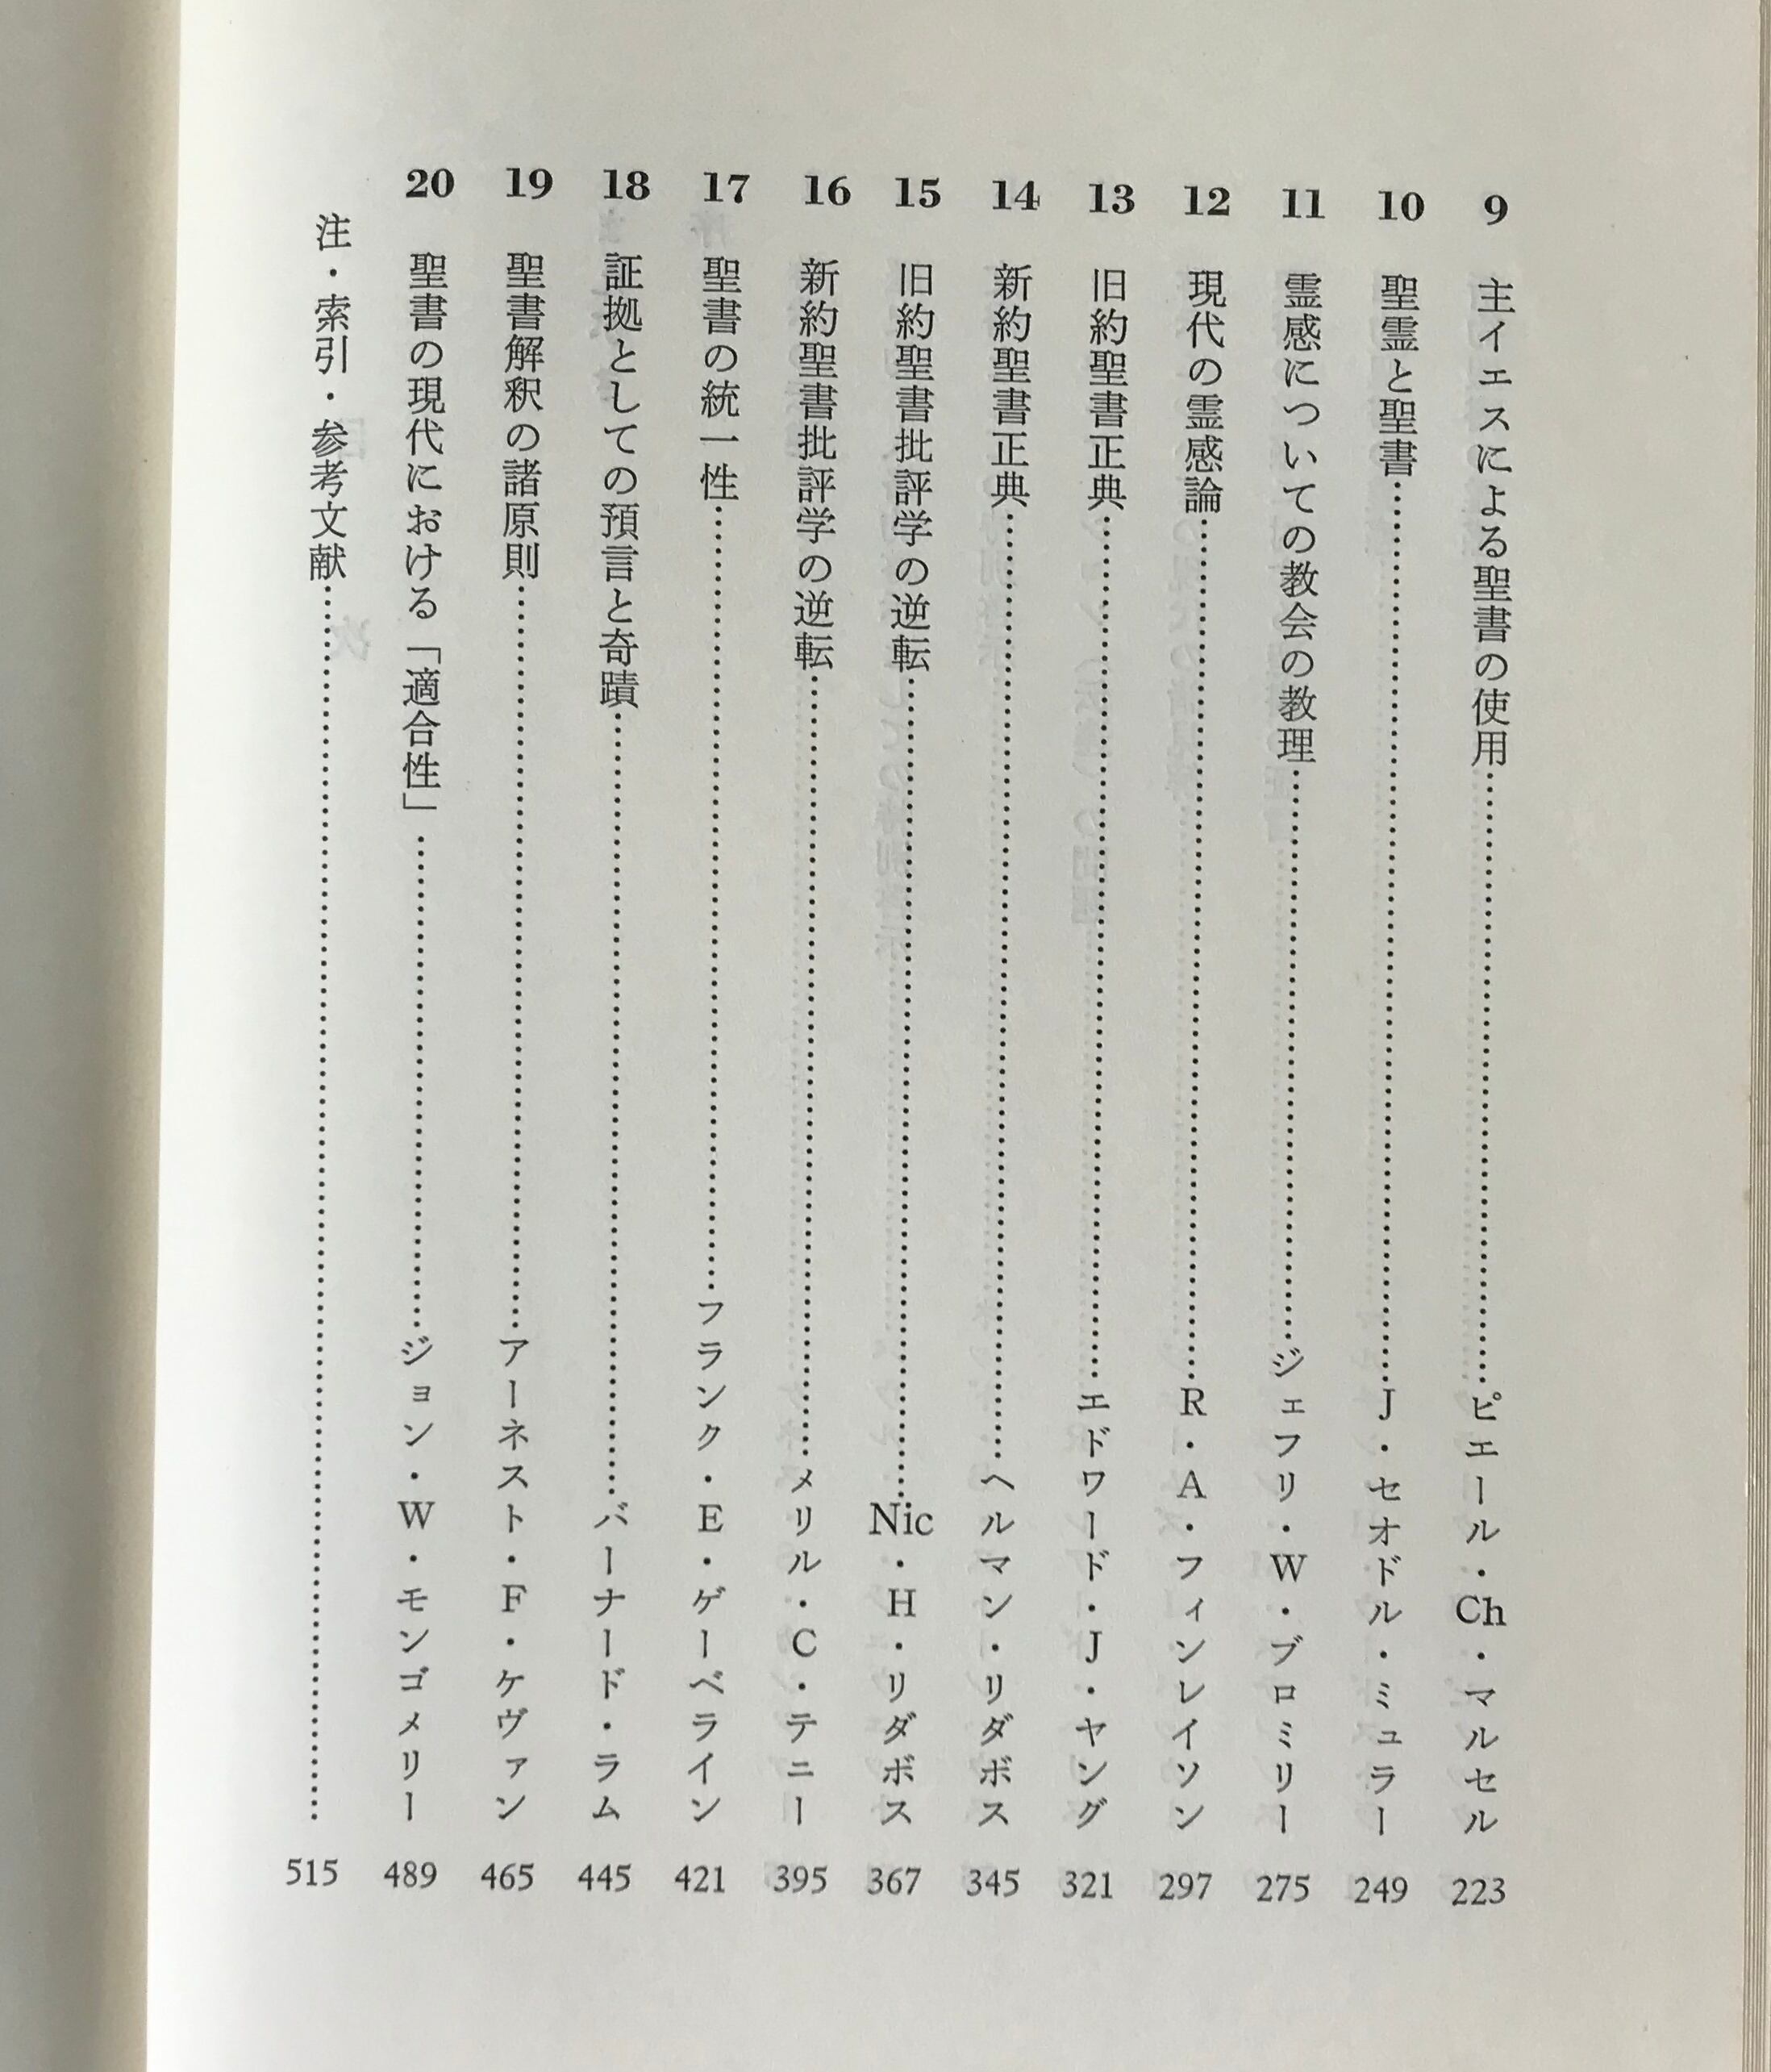 9 主イエスによる聖書の使用……ピエール・Ch・マルセル 223
10 聖霊と聖書……J・セオドル・ミュラー 249
11 霊感についての教会の教理……ジェフリ・W・ブロミリー 275
12 現代の霊感論……R・A・フィンレイソン 297
13 旧約聖書正典……エドワード・J・ヤング 321
14 新約聖書正典……ヘルマン・リダボス 345
15 旧約聖書批評学の逆転……Nic・H・リダボス 367
16 新約聖書批評学の逆転……メリル・C・テニー 395
17 聖書の統一性……フランク・E・ゲーベライン 421
18 証拠としての預言と奇蹟……バーナード・ラム 445
19 聖書解釈の諸原則……アーネスト・F・ケヴァン 465
20 聖書の現代における「適合性」……ジョン・W・モンゴメリー 489
注・索引・参考文献……515